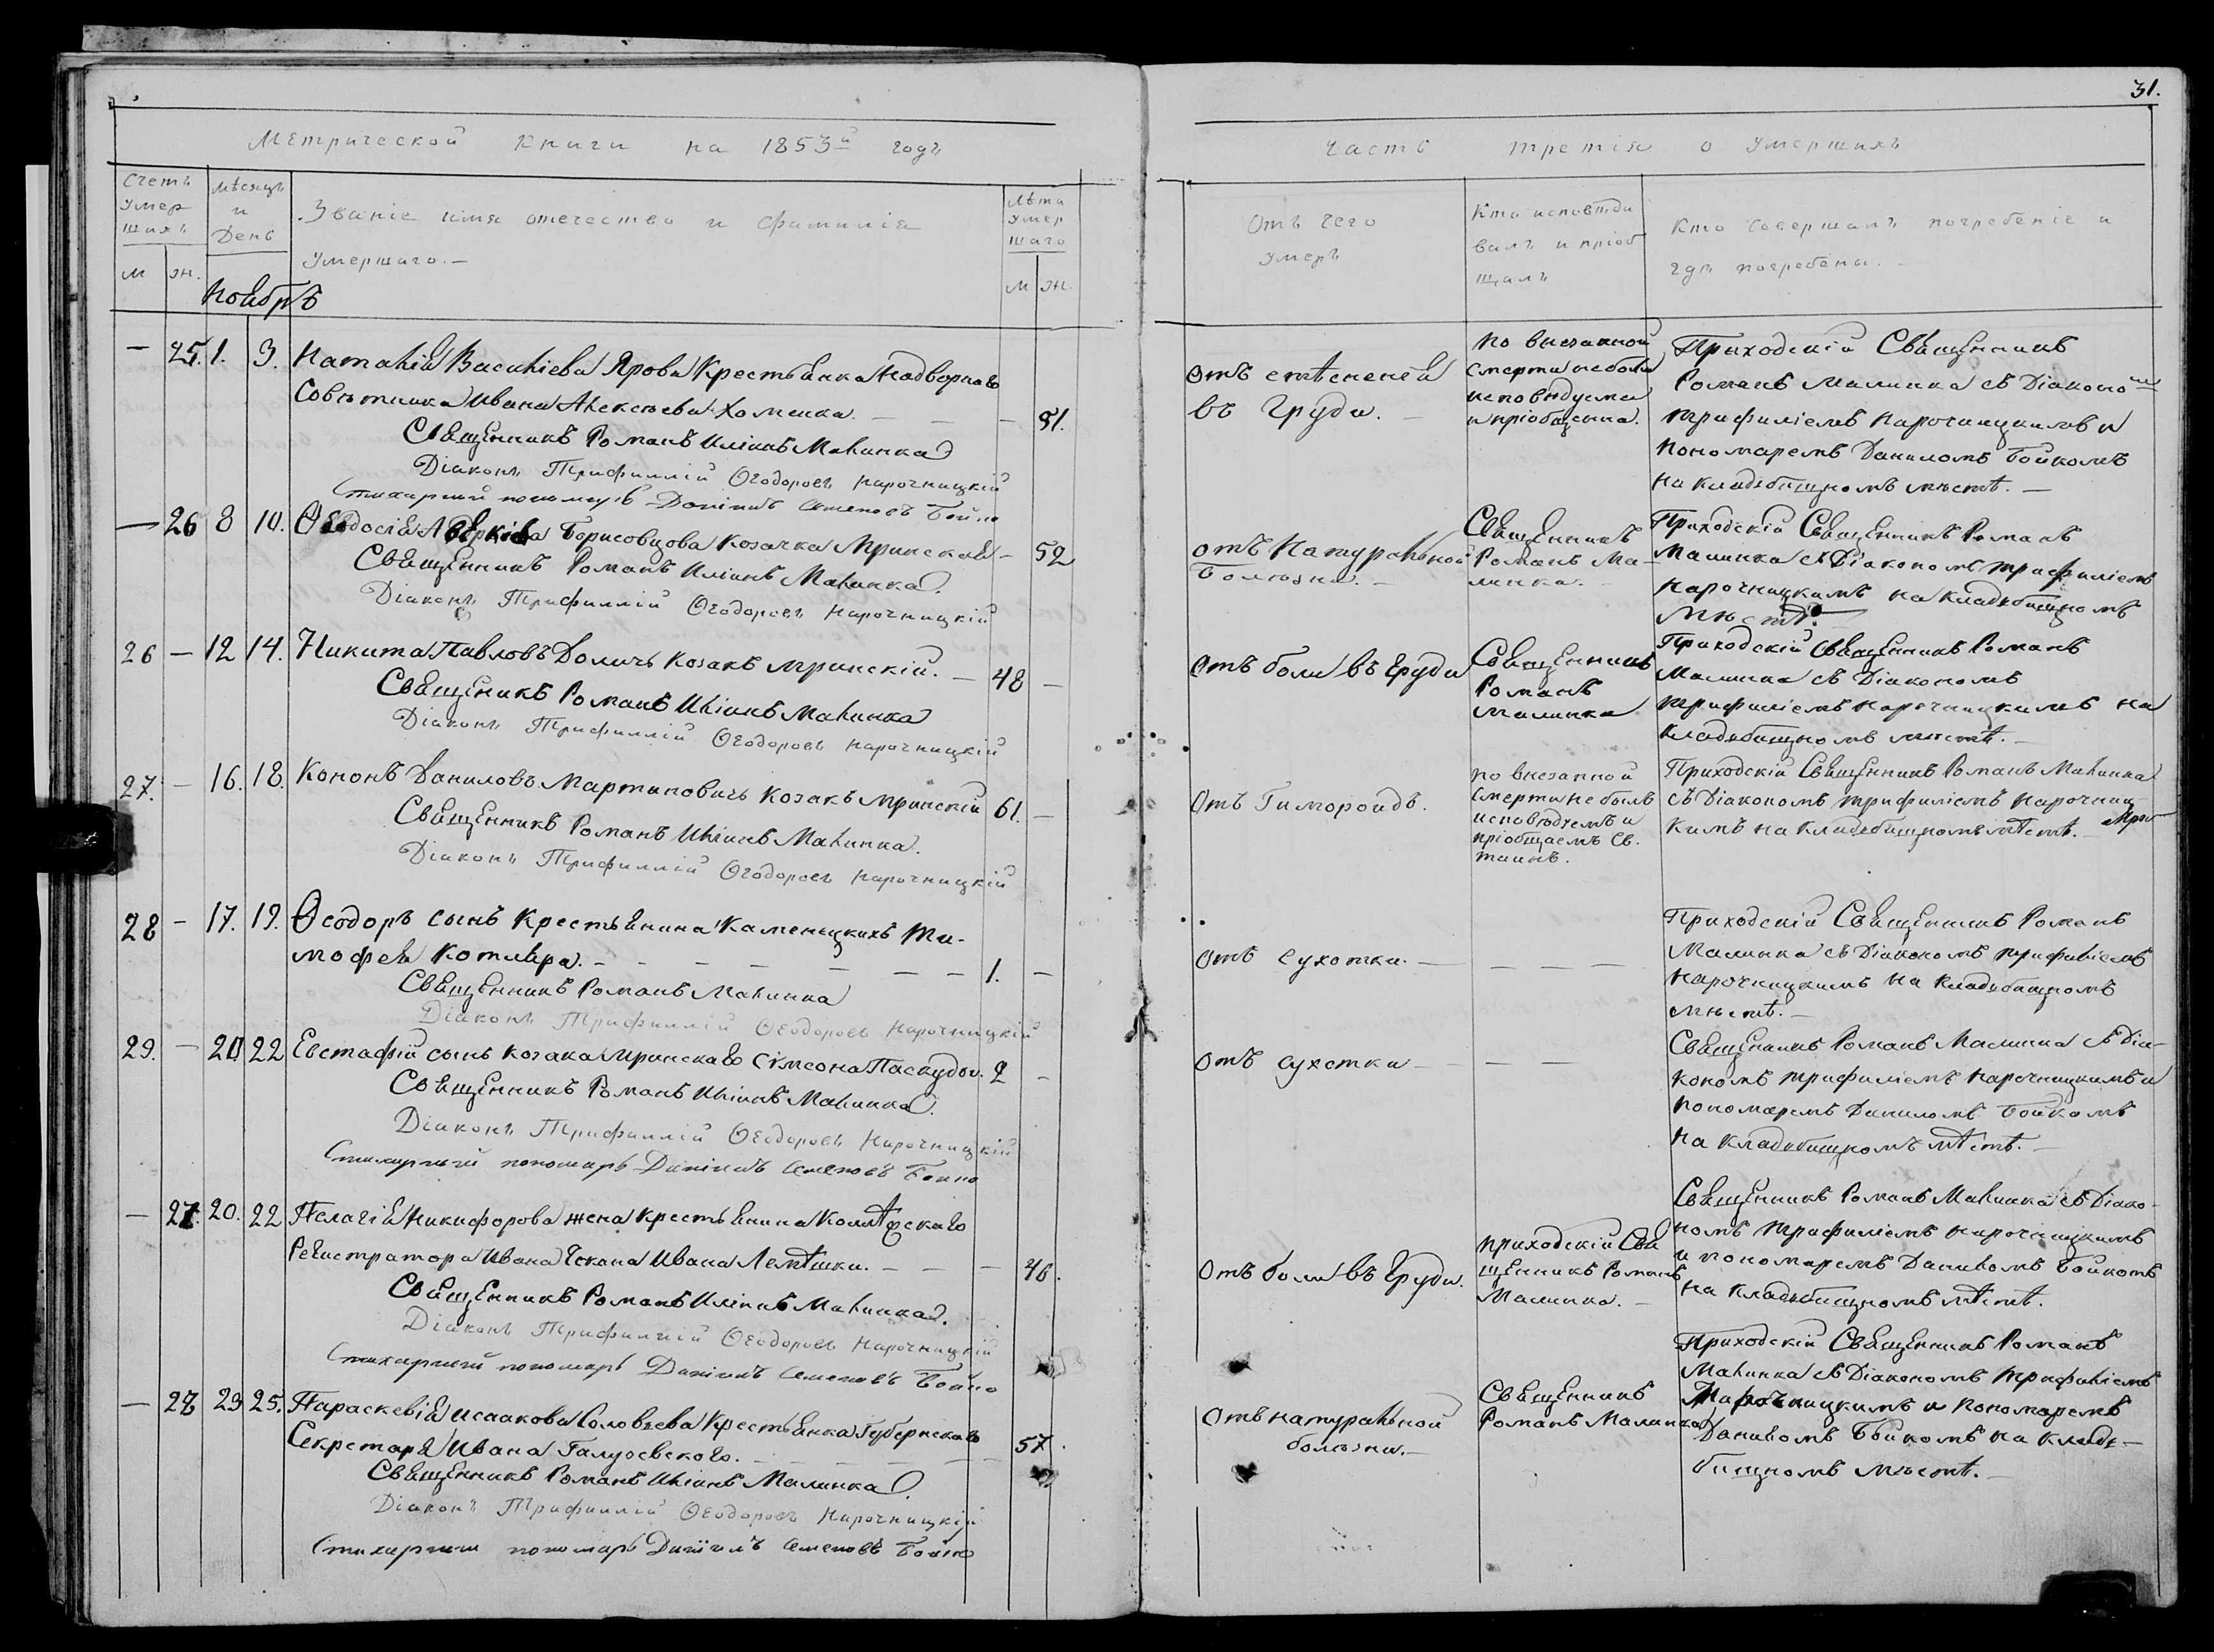 31.
Метрической Книги на 1853й годъ
Счетъ
умер
шихъ
м
ж.
Мѣсяцъ
и
День
Званіе имя отечество и фамилія
умершаго.—
Лѣта
умер
шаго
м
ж.
Ноябрь
— 25. 1. 3. Наталія Васильева Ярова Крестьянка Надворнаго
Совѣтника Ивана Алексѣева Хоменка. — — 51.
Священникъ Романъ Иліинъ Малинка
Діаконъ Трифиллій Ѳеодоровъ Нарочницкій
Стихарный пономарь Даніилъ Семеновъ Бойко
— 26 8 10. Ѳеодосія Аверкіева Борисовцова козачка Мринская — 52
Священникъ Романъ Иліинъ Малинка.
Діаконъ Трифиллій Ѳеодоровъ Нарочницкій
26 — 12 14. Никита Павловъ Доличъ козакъ мринскій. — 48 —
Священикъ Романъ Иліинъ Малинка
Діаконъ Трифиллій Ѳеодоровъ Нарочницкій
27. — 16. 18. Кононъ Даниловъ Мартиновичъ козакъ мринскій 61. —
Священникъ Романъ Иліинъ Малинка.
Діаконъ Трифиллій Ѳеодоровъ Нарочницкій
28 — 17. 19. Ѳеодоръ сынъ Крестьянина Каменецкихъ Ти-
мофея Котляра. — — — — — — — 1. —
Священникъ Романъ Малинка
Діаконъ Трифиллій Ѳеодоровъ Нарочницкій
29. — 20 22 Евстафій сынъ козака Мринскаго Сѵмеона 2 —
Священникъ Романъ Иліинъ Малинка.
Діаконъ Трифиллій Ѳеодоровъ Нарочницкій
Стихарный пономарь Даніилъ Семеновъ Бойко
— 27. 20. 22 Пелагія Никифорова жена крестьянина Колѣжскаго
Регистратора Ивана Ивана Лемѣшки. — — — 46.
Священникъ Романъ Иліинъ Малинка.
Діаконъ Трифиллій Ѳеодоровъ Нарочницкій
Стихарный пономарь Даніилъ Семеновъ Бойко
— 28 23 25. Параскевія Исаакова Соловьева Крестьянка Губернскаго
Секретаря Ивана — — 57.
Священникъ Романъ Иліинъ Малинка.
Діаконъ Трифиллій Ѳеодоровъ Нарочницкій
Стихарный пономарь Даніилъ Семеновъ Бойко
Часть третія о умершихъ
Отъ чего
умеръ
Кто исповѣды
валъ и пріоб
щалъ
Кто Совершалъ погребеніе и
гдѣ погребены.—
отъ стѣсненія
въ груди. —
по внезапной
смерти небыла
исповѣдуема
и пріобщенна.
Приходскій Священникъ
Романъ Малинка съ Діаконом
Трифиліемъ Нарочницкимъ и
Пономаремъ Даниломъ Бойкомъ
на кладьбищномъ мѣстѣ. —
отъ Натуральной
Болѣзни. —
Священникъ
Романъ Ма-
линка.
Приходскій Священникъ Романъ
Малинка съ Діакономъ Трифиліемъ
Нарочницкимъ на Кладьбищномъ
мѣстѣ.
Отъ боли въ груди
Священникъ
Романъ
Малинка
Приходскій Священникъ Романъ
Малинка съ Діакономъ
Трифиліемъ Нарочницкимъ на
кладьбищномъ мѣстѣ. —
Отъ Гимороидъ.
по внезапной
смерти не былъ
исповѣдуемъ и
пріобщаемъ Св.
таинъ.
Приходскій Священникъ Романъ Малинка
съ Діакономъ Трифиліемъ Нарочниц-
кимъ на Кладьбищномъ мѣстѣ. —
Отъ Сухотки. — — — —
Приходскій Священникъ Романъ
Малинка съ Діакономъ Трифиліемъ
Нарочницкимъ на Кладьбищномъ
мѣстѣ. —
отъ сухотки — — —
Священникъ Романъ Малинка съ Діа-
кономъ Трифиліемъ Нарочницкимъ и
пономаремъ Даниломъ Бойкомъ
на кладьбищномъ мѣстѣ. —
Отъ боли въ груди.
Приходскій Свя
щенникъ Романъ
Малинка. —
Священникъ Романъ Малинка съ Діако-
номъ Трифиліемъ Нарочницкимъ
и пономаремъ Даниломъ Бойкомъ
на Кладьбищномъ мѣстѣ.
Отъ натуральной
болѣзни. —
Священникъ
Романъ Малинка
Приходскій Священникъ Романъ
Малинка съ Діакономъ Трифиліемъ
Нарочницкимъ и Пономаремъ
Даниломъ Бойкомъ на кладь-
бищномъ мѣстѣ. —